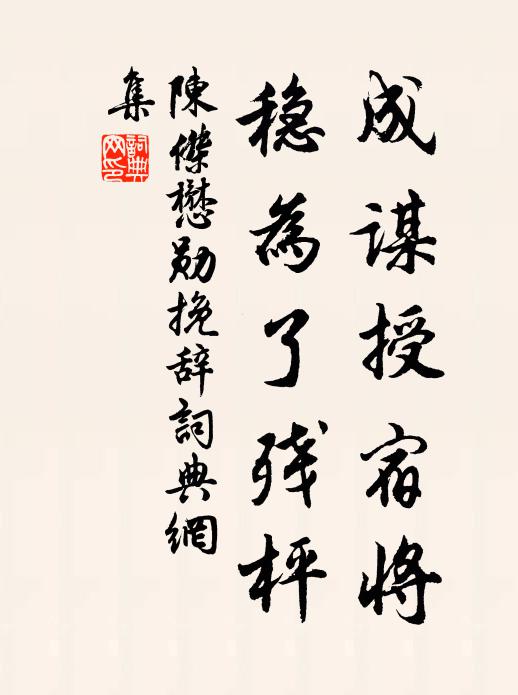 成谋授宿将
稳為了残枰
陳傑懋勋挽辞詞典網
集
詞典
网印